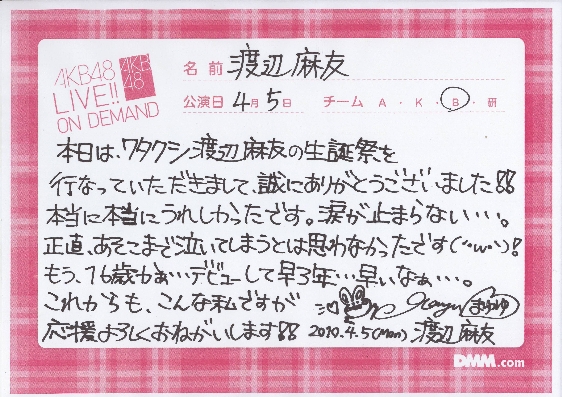 AKB48
LIVE!!
ON DEMAND
AKB
48
名前 渡辺麻友
公演日 4月5日 チーム A・K・B・研
本日は、ワタクシ渡辺麻友の生誕祭を
行なっていただきまして、誠にありがとうございました!!
本当に本当にうれしかったです。涙が止まらない・・・。
正直、あそこまで泣いてしまうとは思わなかったです(´・ω・`)!
もう、16歳かぁ・・・デビューして早3年・・・早いなぁ・・・。
これからも、こんな私ですが Mayu まゆゆ
応援よろしくおねがいします!! 2010.4.5(Mon) 渡辺麻友
DMM.com